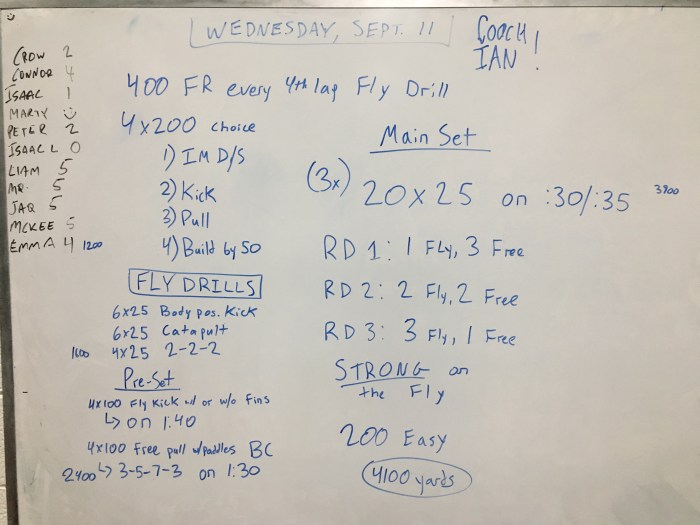 WEDNESDAY, SEPT. 11
COACH
IAN!
CROW 2
CONNOR 4
ISAAC 1
MARTY
PETER 2
ISAAC L 0
LIAM 5
MR. 5
JAQ 5
MCKEE 5
EMMA 4 1200
400 FR every 4th lap Fly Drill
4x200 choice
1) IM D/S
2) Kick
3) Pull
4) Build by 50
FLY DRILLS
6x25 Body pos. Kick
6x25 Catapult
1600 4x25 2-2-2
Pre-Set
4x100 Fly Kick w/ or w/o Fins
↳ on 1:40
4x100 Free pull w/paddles BC
2400 ↳ 3-5-7-3 on 1:30
Main Set
(3x) 20 x 25 on :30/:35 3900
RD 1: 1 Fly, 3 Free
RD 2: 2 Fly, 2 Free
RD 3: 3 Fly, 1 Free
STRONG on
the Fly
200 Easy
4100 yards